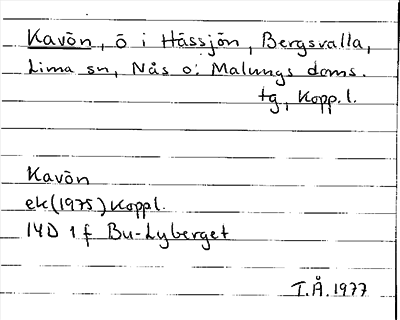 Kavön, ö i Hässjön, Bergsvalla,
Lima sn, Nås o. Malungs doms.
tg, Kopp. l.
Kavön
ek (1975) Koppl.
14D 1f Bu-Lyberget
T.Å. 1977